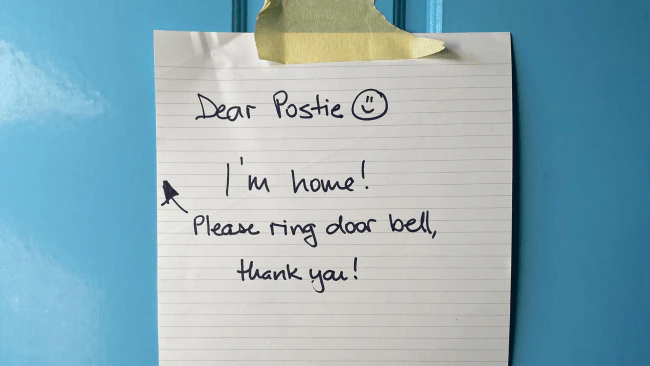 Dear Postie ☺
I'm home!
Please ring door bell,
thank you!